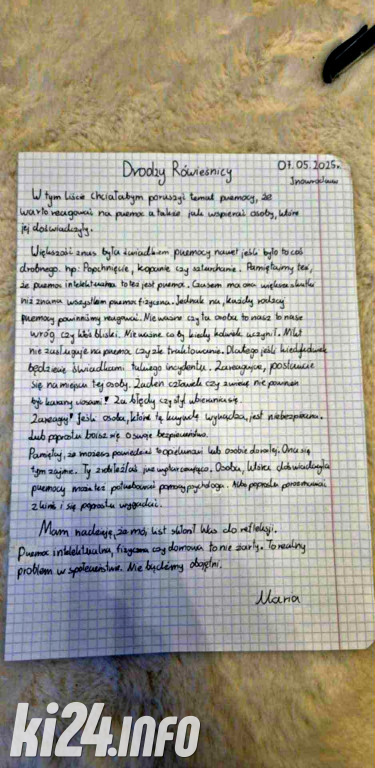 Drodzy Rówieśnicy
07.05.2025r.
Inowrocław
W tym liście chciałabym poruszyć temat przemocy, że
warto reagować na przemoc a także jak wspierać osoby, które
jej doświadczyły.
Większość z nas była świadkiem przemocy nawet jeśli było to coś
drobnego. np: Popchnięcie, kopanie czy szturchanie. Pamiętajmy też,
że przemoc intelektualna to też jest przemoc. Czasem ma ona większe skutki
niż znana wszystkim przemoc fizyczna. Jednak na, każdy rodzaj
przemocy powinniśmy reagować. Nie ważne czy ta osoba to nasz
wróg czy ktoś bliski. Nie ważne co by kiedy kolwiek uczynił. Nikt
nie zasługuje na przemoc, czy złe traktowanie. Dlatego jeśli kiedykolwiek
będziecie świadkami takiego incydentu. Zareagujcie, postawcie
się na miejscu tej osoby. Żaden człowiek czy zwierzę nie powinien
być karany ciosami! Za błędy czy styl ubierania się.
Zareaguj! Jeśli osoba, która tą krzywdę wyrządza, jest niebezpieczna.
Lub poprostu boisz się o swoje bezpieczeństwo.
Pamiętaj, że możesz powiedzieć to opiekunowi lub osobie dorosłej. Ona się
tym zajmie. Ty zrobiłeś/aś już wystarczająco. Osoba, która doświadczyła
przemocy może też potrzebować pomocy psychologa. Albo poprostu porozmawiać
z kimś i się poprostu wygadać.
Mam nadzieję, że mój list skłonił Was do refleksji.
Przemoc intelektualna, fizyczna czy domowa to nie żarty. To realny
problem w społeczeństwie. Nie bądźmy obojętni.
Maria
ki24.info